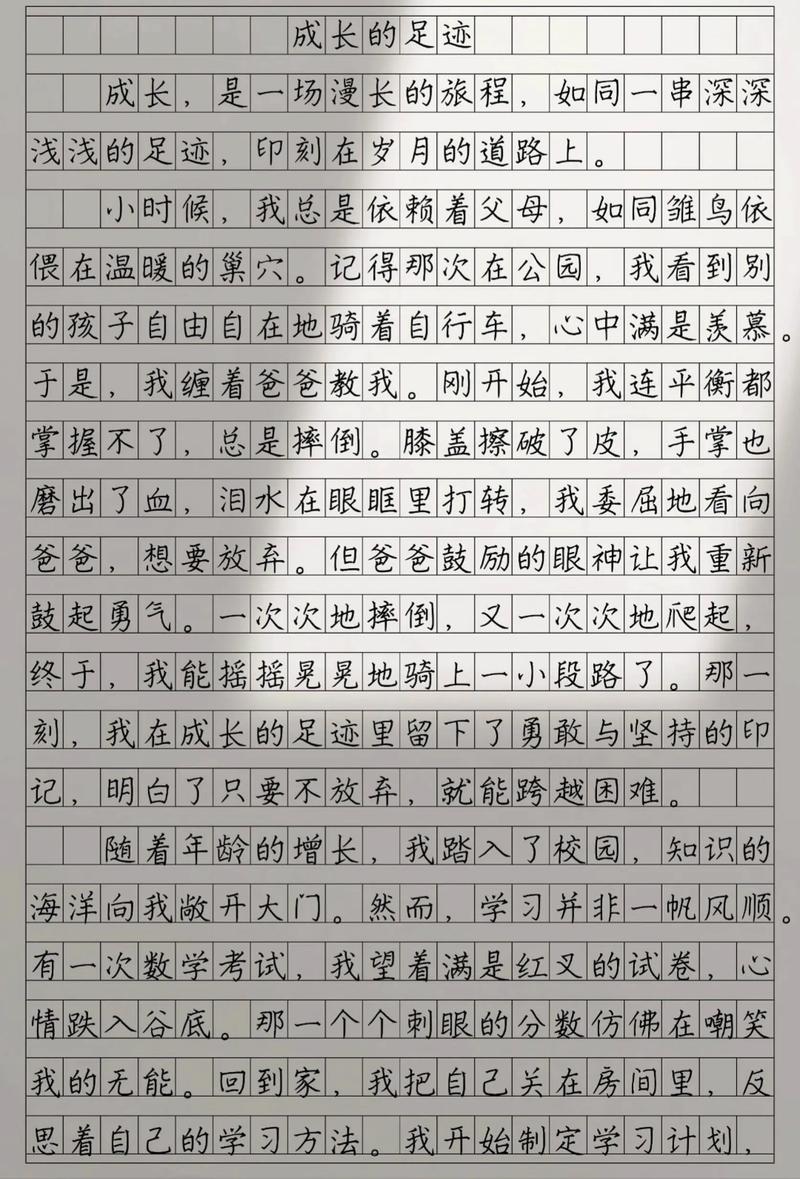 成长的足迹
成长，是一场漫长的旅程，如同一串深深
浅浅的足迹，印刻在岁月的道路上。
小时候，我总是依赖着父母，如同雏鸟依
偎在温暖的巢穴。记得那次在公园，我看到别
的孩子自由自在地骑着自行车，心中满是羡慕。
于是，我缠着爸爸教我。刚开始，我连平衡都
掌握不了，总是摔倒。膝盖擦破了皮，手掌也
磨出了血，泪水在眼眶里打转，我委屈地看向
爸爸，想要放弃。但爸爸鼓励的眼神让我重新
鼓起勇气。一次次地摔倒，又一次次地爬起，
终于，我能摇摇晃晃地骑上一小段路了。那一
刻，我在成长的足迹里留下了勇敢与坚持的印
记，明白了只要不放弃，就能跨越困难。
随着年龄的增长，我踏入了校园，知识的
海洋向我敞开大门。然而，学习并非一帆风顺。
有一次数学考试，我望着满是红叉的试卷，心
情跌入谷底。那一个个刺眼的分数仿佛在嘲笑
我的无能。回到家，我把自己关在房间里，反
思着自己的学习方法。我开始制定学习计划，